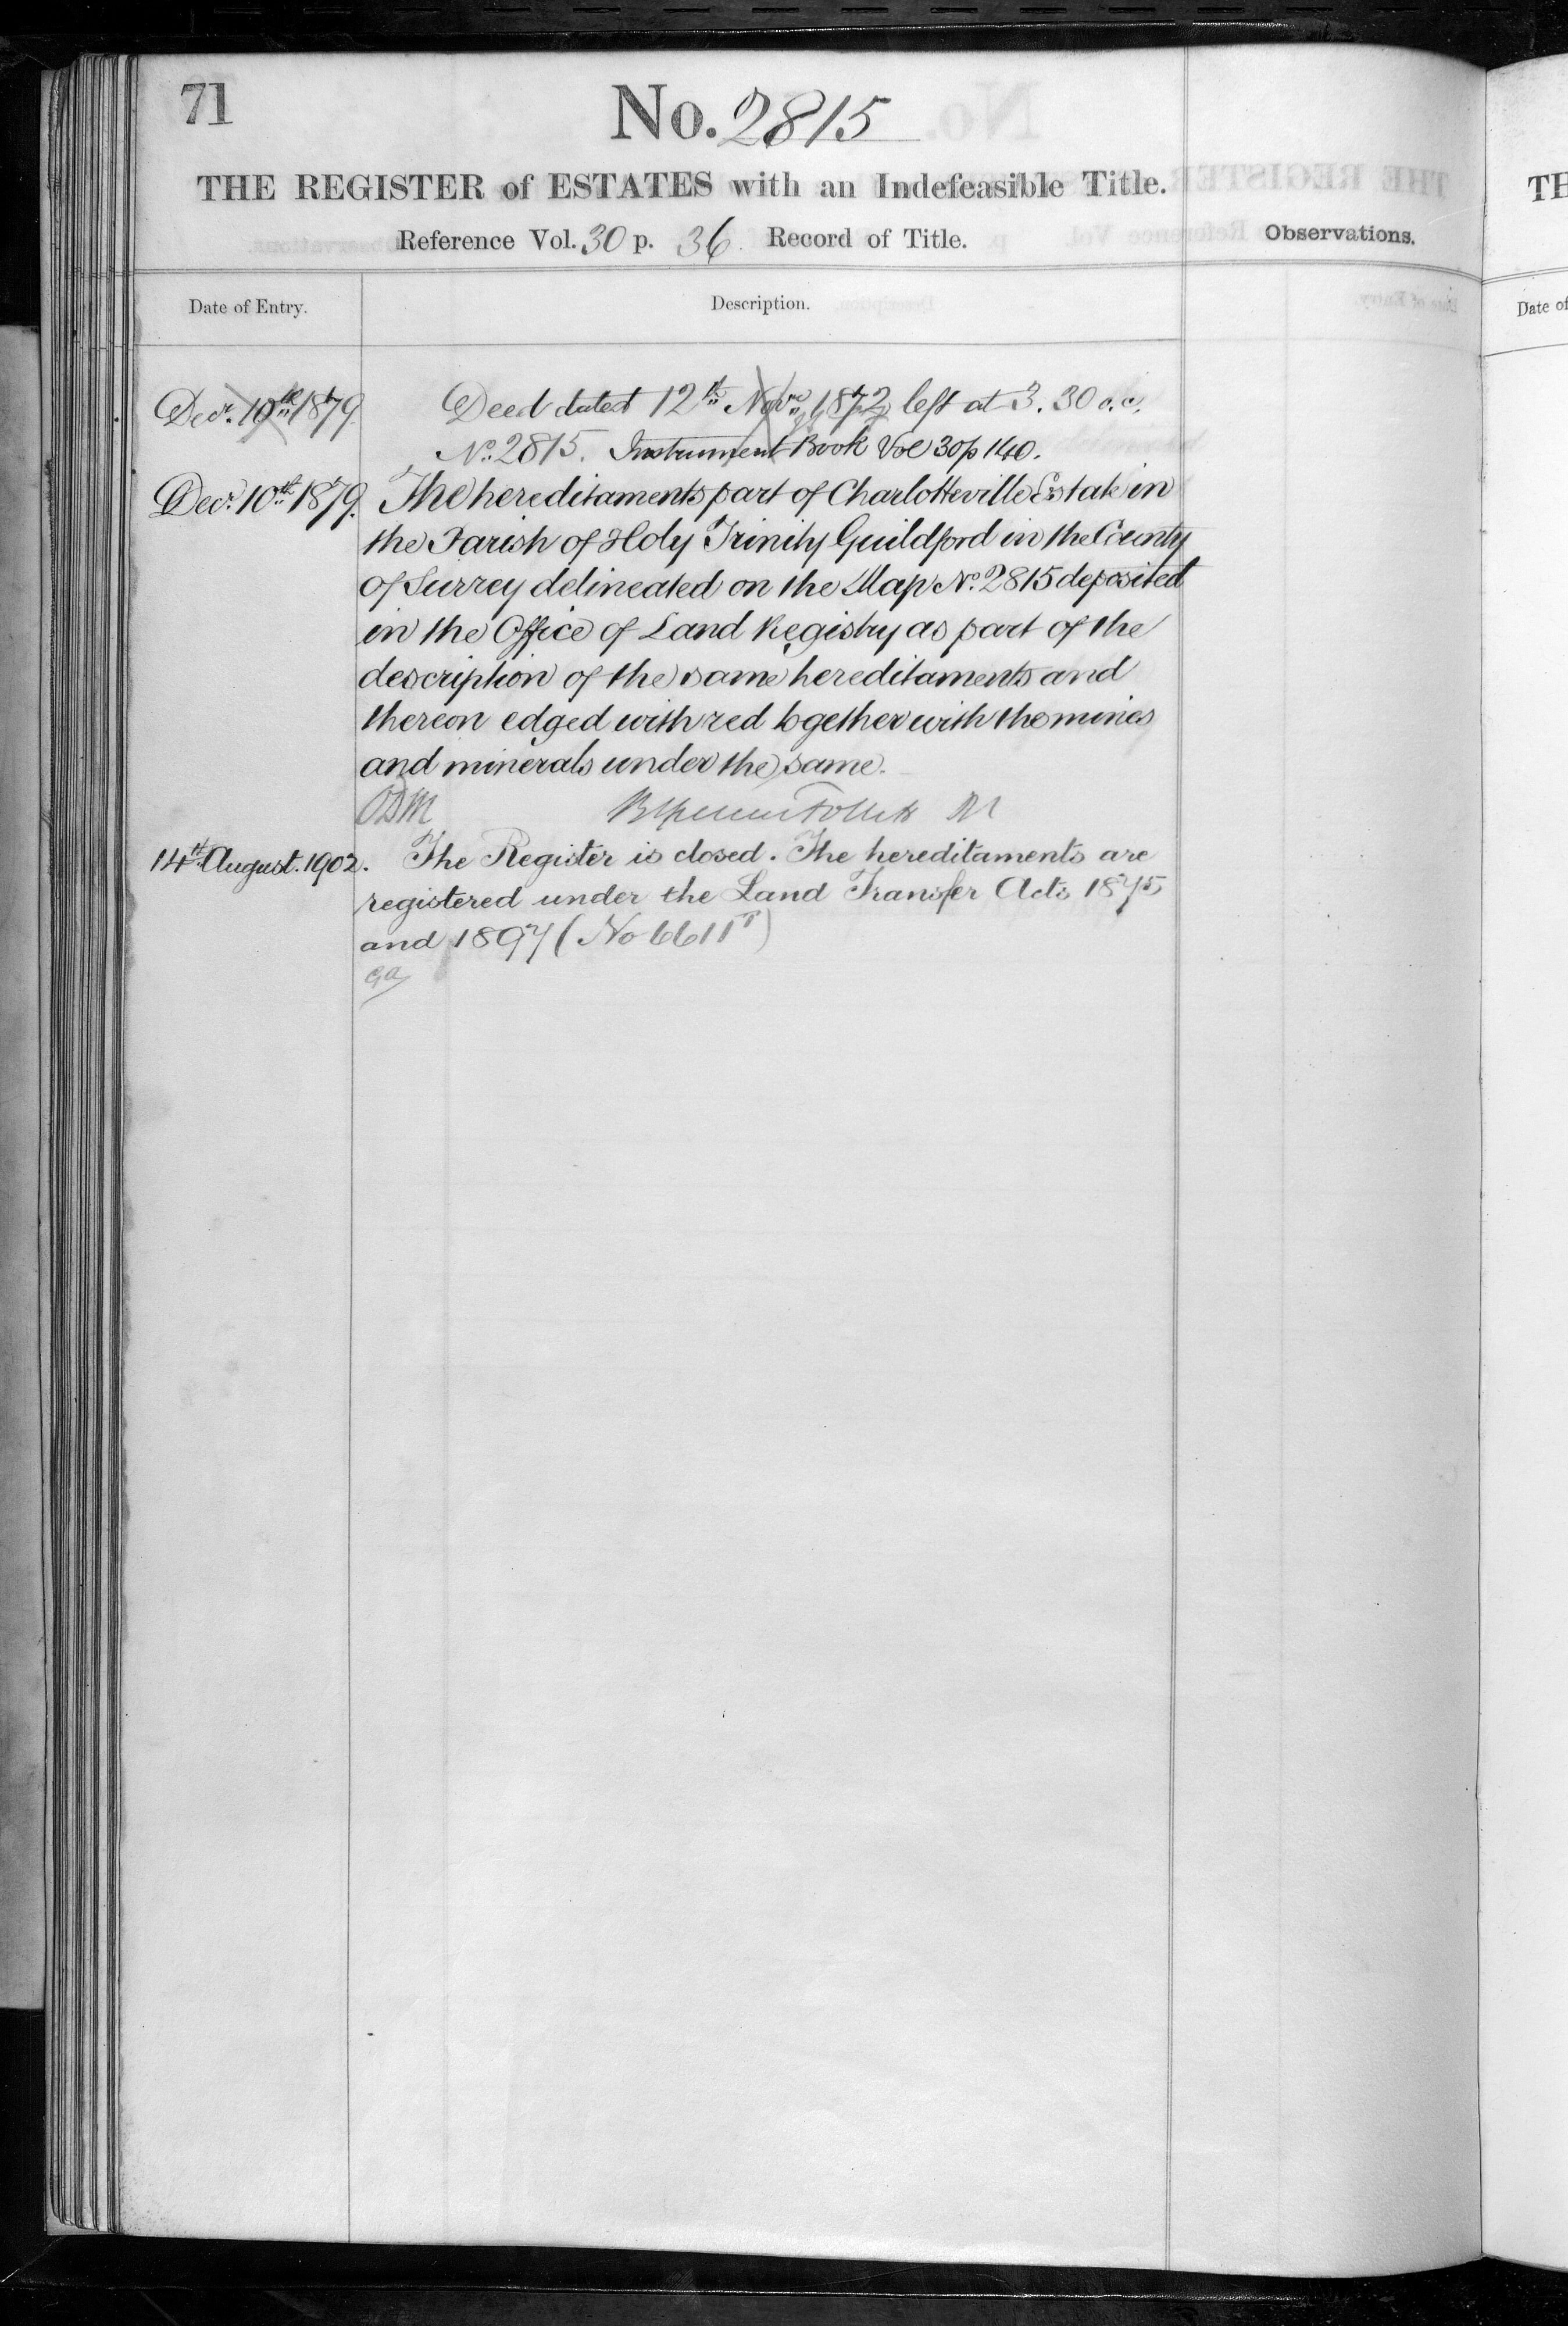 71
No. 2815
THE REGISTER of ESTATES with an Indefeasible Title.
Reference Vol. 30 p. 36 Record of Title.
Observations.
Date of Entry.
Description.
Decr. 10th 1879. Deed dated 12th Novr. 1872 left at 3.30 o.c.
No. 2815. Instrument Book Vol 30 p 140.
Decr. 10th 1879. The hereditaments part of Charlotteville Estate in
the Parish of Holy Trinity Guildford in the County
of Surrey delineated on the Map No. 2815 deposited
in the Office of Land Registry as part of the
description of the same hereditaments and
thereon edged with red together with the mines
and minerals under the same.
14th August. 1902. The Register is closed. The hereditaments are
registered under the Land Transfer Acts 1875
and 1897 (No 6611
TH
Date of